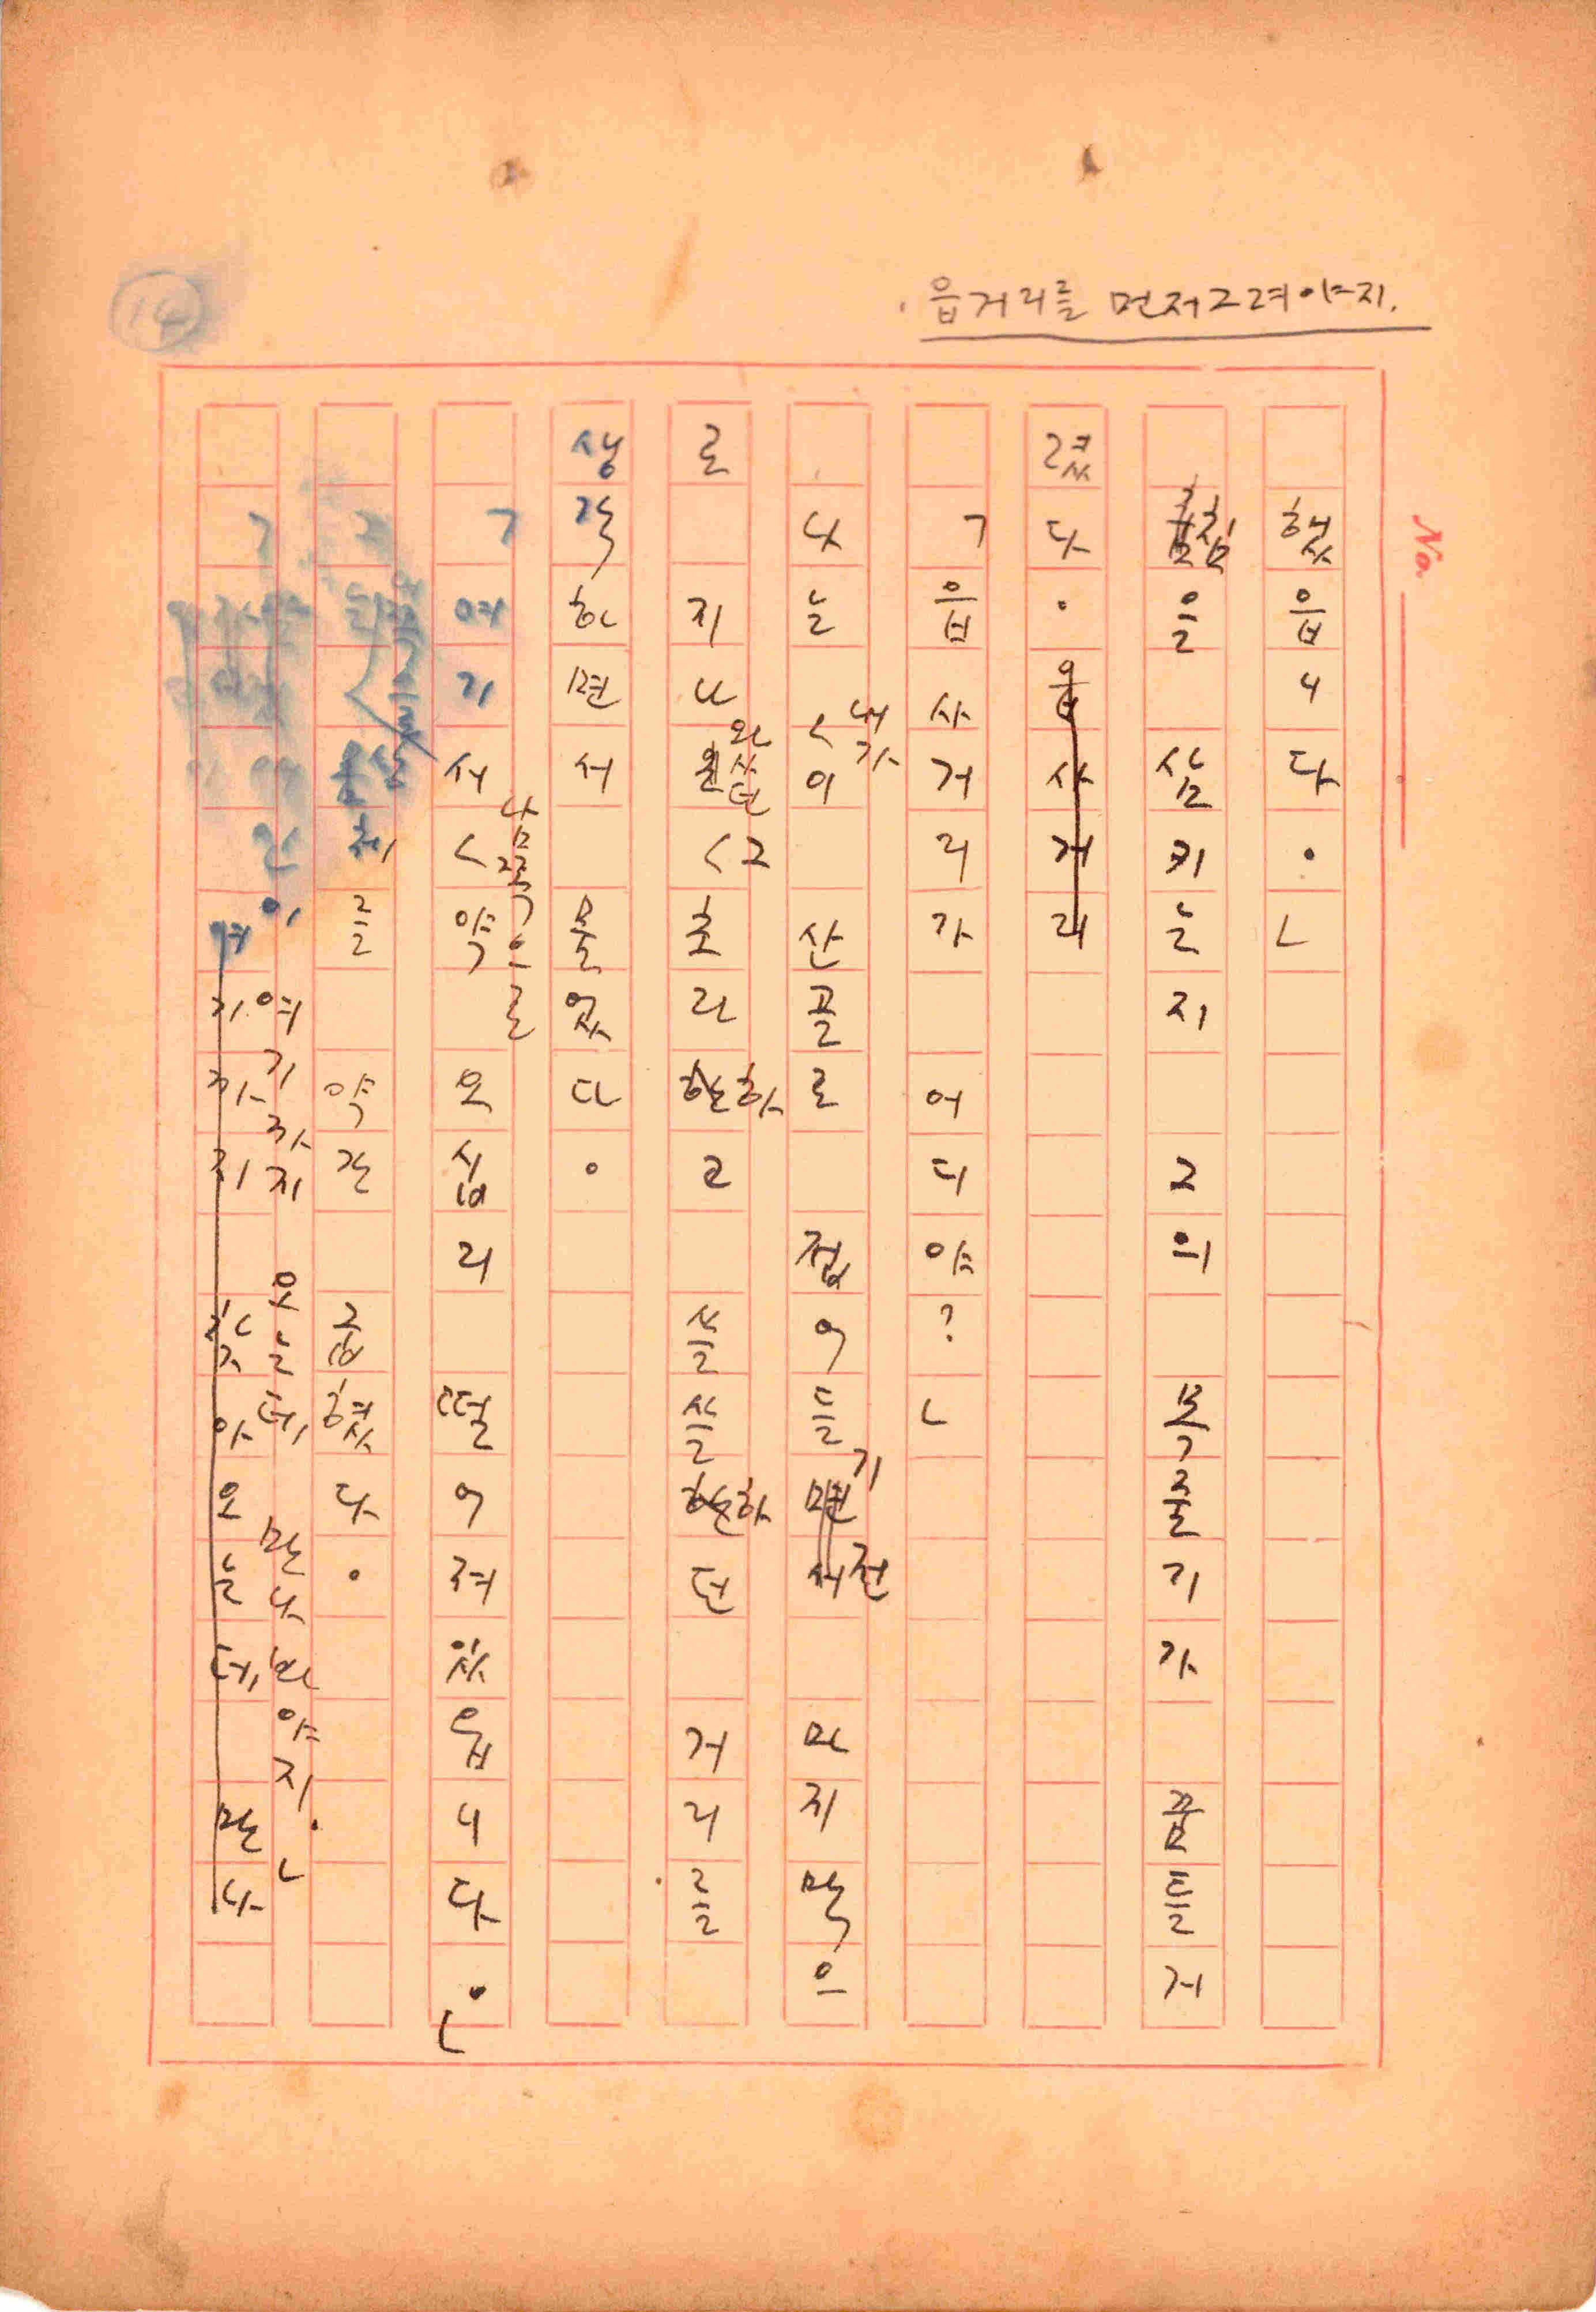 읍거리를 먼저 그려야지.
14
No.
했읍니다.」
침을 삼키는지 그의 목줄기가 꿈틀거
렸다. 읍사거리
「읍사거리가 어디야?」
나는 내가 이 산골로 접어들기 전 마지막으
로 지나왔던 그 초라하고 쓸쓸하던 거리를
생각하면서 물었다.
「여기서 남쪽으로 약 오십리 떨어져 있읍니다.」
를 약간 굽혔다.
여기까지 왔는데 만나봐야지.」
여기까지 찾아오는데 만나